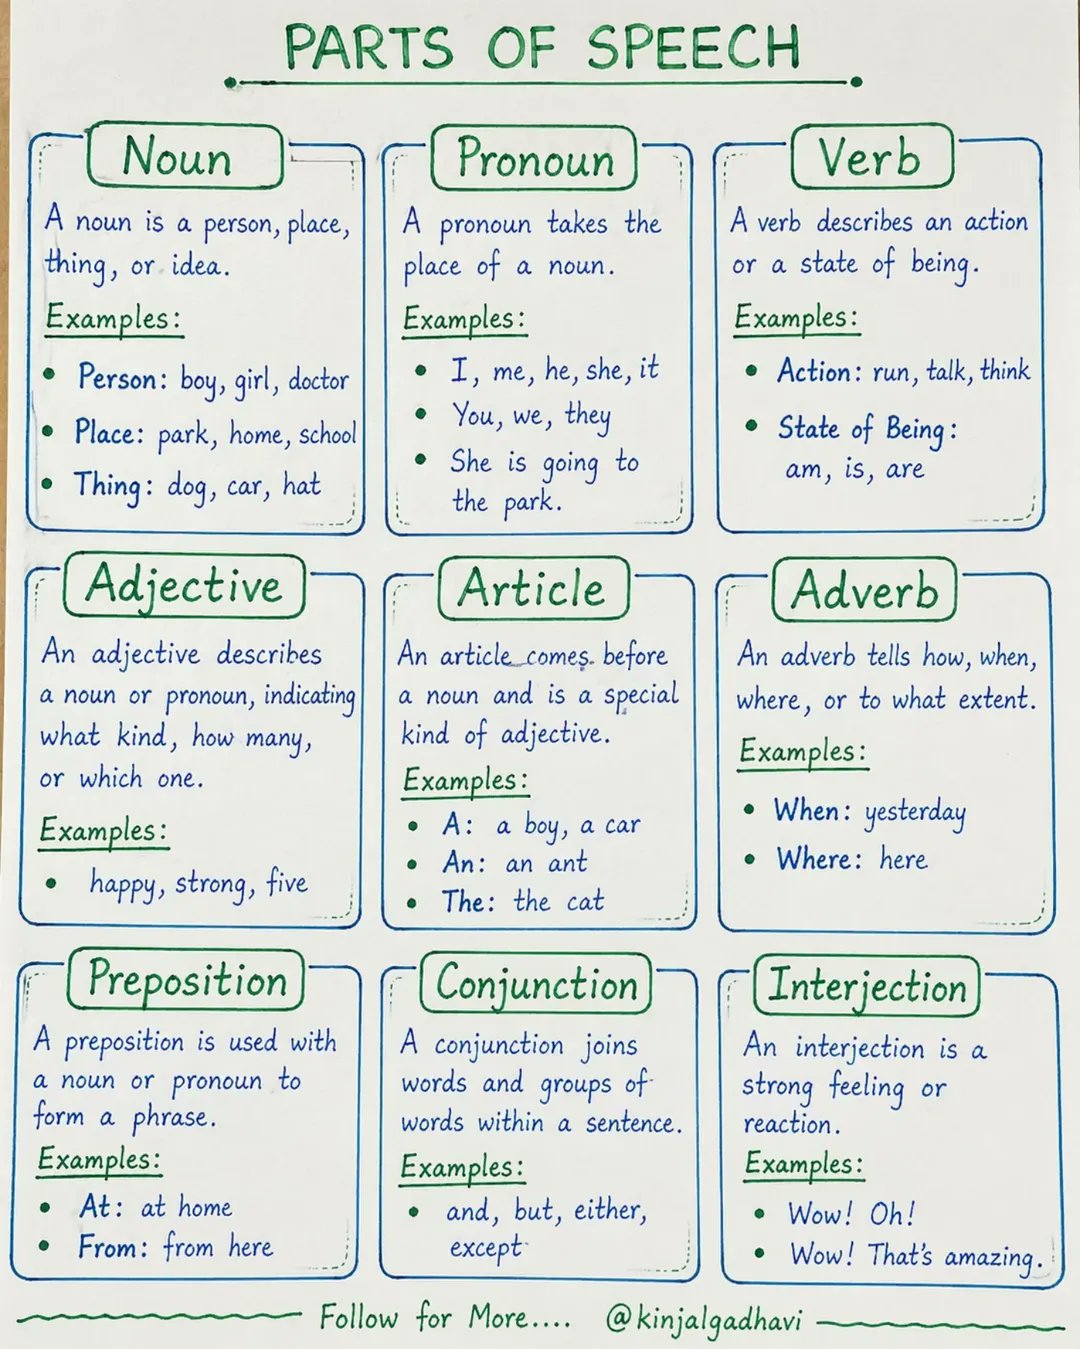 PARTS OF SPEECH
Noun
A noun is a person, place,
thing, or idea.
Examples:
• Person: boy, girl, doctor
• Place: park, home, school
• Thing: dog, car, hat
Pronoun
A pronoun takes the
place of a noun.
Examples:
• I, me, he, she, it
• You, we, they
• She is going to
the park.
Verb
A verb describes an action
or a state of being.
Examples:
• Action: run, talk, think
• State of Being:
am, is, are
Adjective
An adjective describes
a noun or pronoun, indicating
what kind, how many,
or which one.
Examples:
• happy, strong, five
Article
An article comes before
a noun and is a special
kind of adjective.
Examples:
• A: a boy, a car
• An: an ant
• The: the cat
Adverb
An adverb tells how, when,
where, or to what extent.
Examples:
• When: yesterday
• Where: here
Preposition
A preposition is used with
a noun or pronoun to
form a phrase.
Examples:
• At: at home
• From: from here
Conjunction
A conjunction joins
words and groups of
words within a sentence.
Examples:
• and, but, either,
except
Interjection
An interjection is a
strong feeling or
reaction.
Examples:
• Wow! Oh!
• Wow! That's amazing.
Follow for More.... @kinjalgadhavi